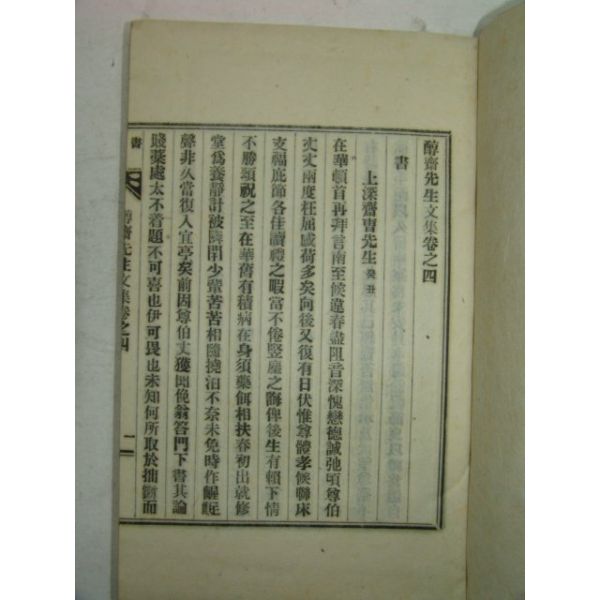 醇齋先生文集卷之四
書
上深齋曺先生 癸丑
在華頓首再拜言南至候違春盡阻音深愧戀德誠弛頃尊伯
丈丈兩度枉屈感荷多矣向後又復有日伏惟尊體孝候聯床
支福庇節各佳讀禮之暇當不倦竪塵之誨俾後生有賴下情
不勝頌祝之至在華舊有積病在身須藥餌相扶春初出就修
堂爲養靜計被隣閈少輩苦苦相隨撓汨不奈未免時作
聲非久當復入宜亭矣前因尊伯丈獲聞俛翁答門下書其論
賤藁處太不着題不可喜也伊可畏也未知何所取於拙斷而
書
醇齋先生文集卷之四
一